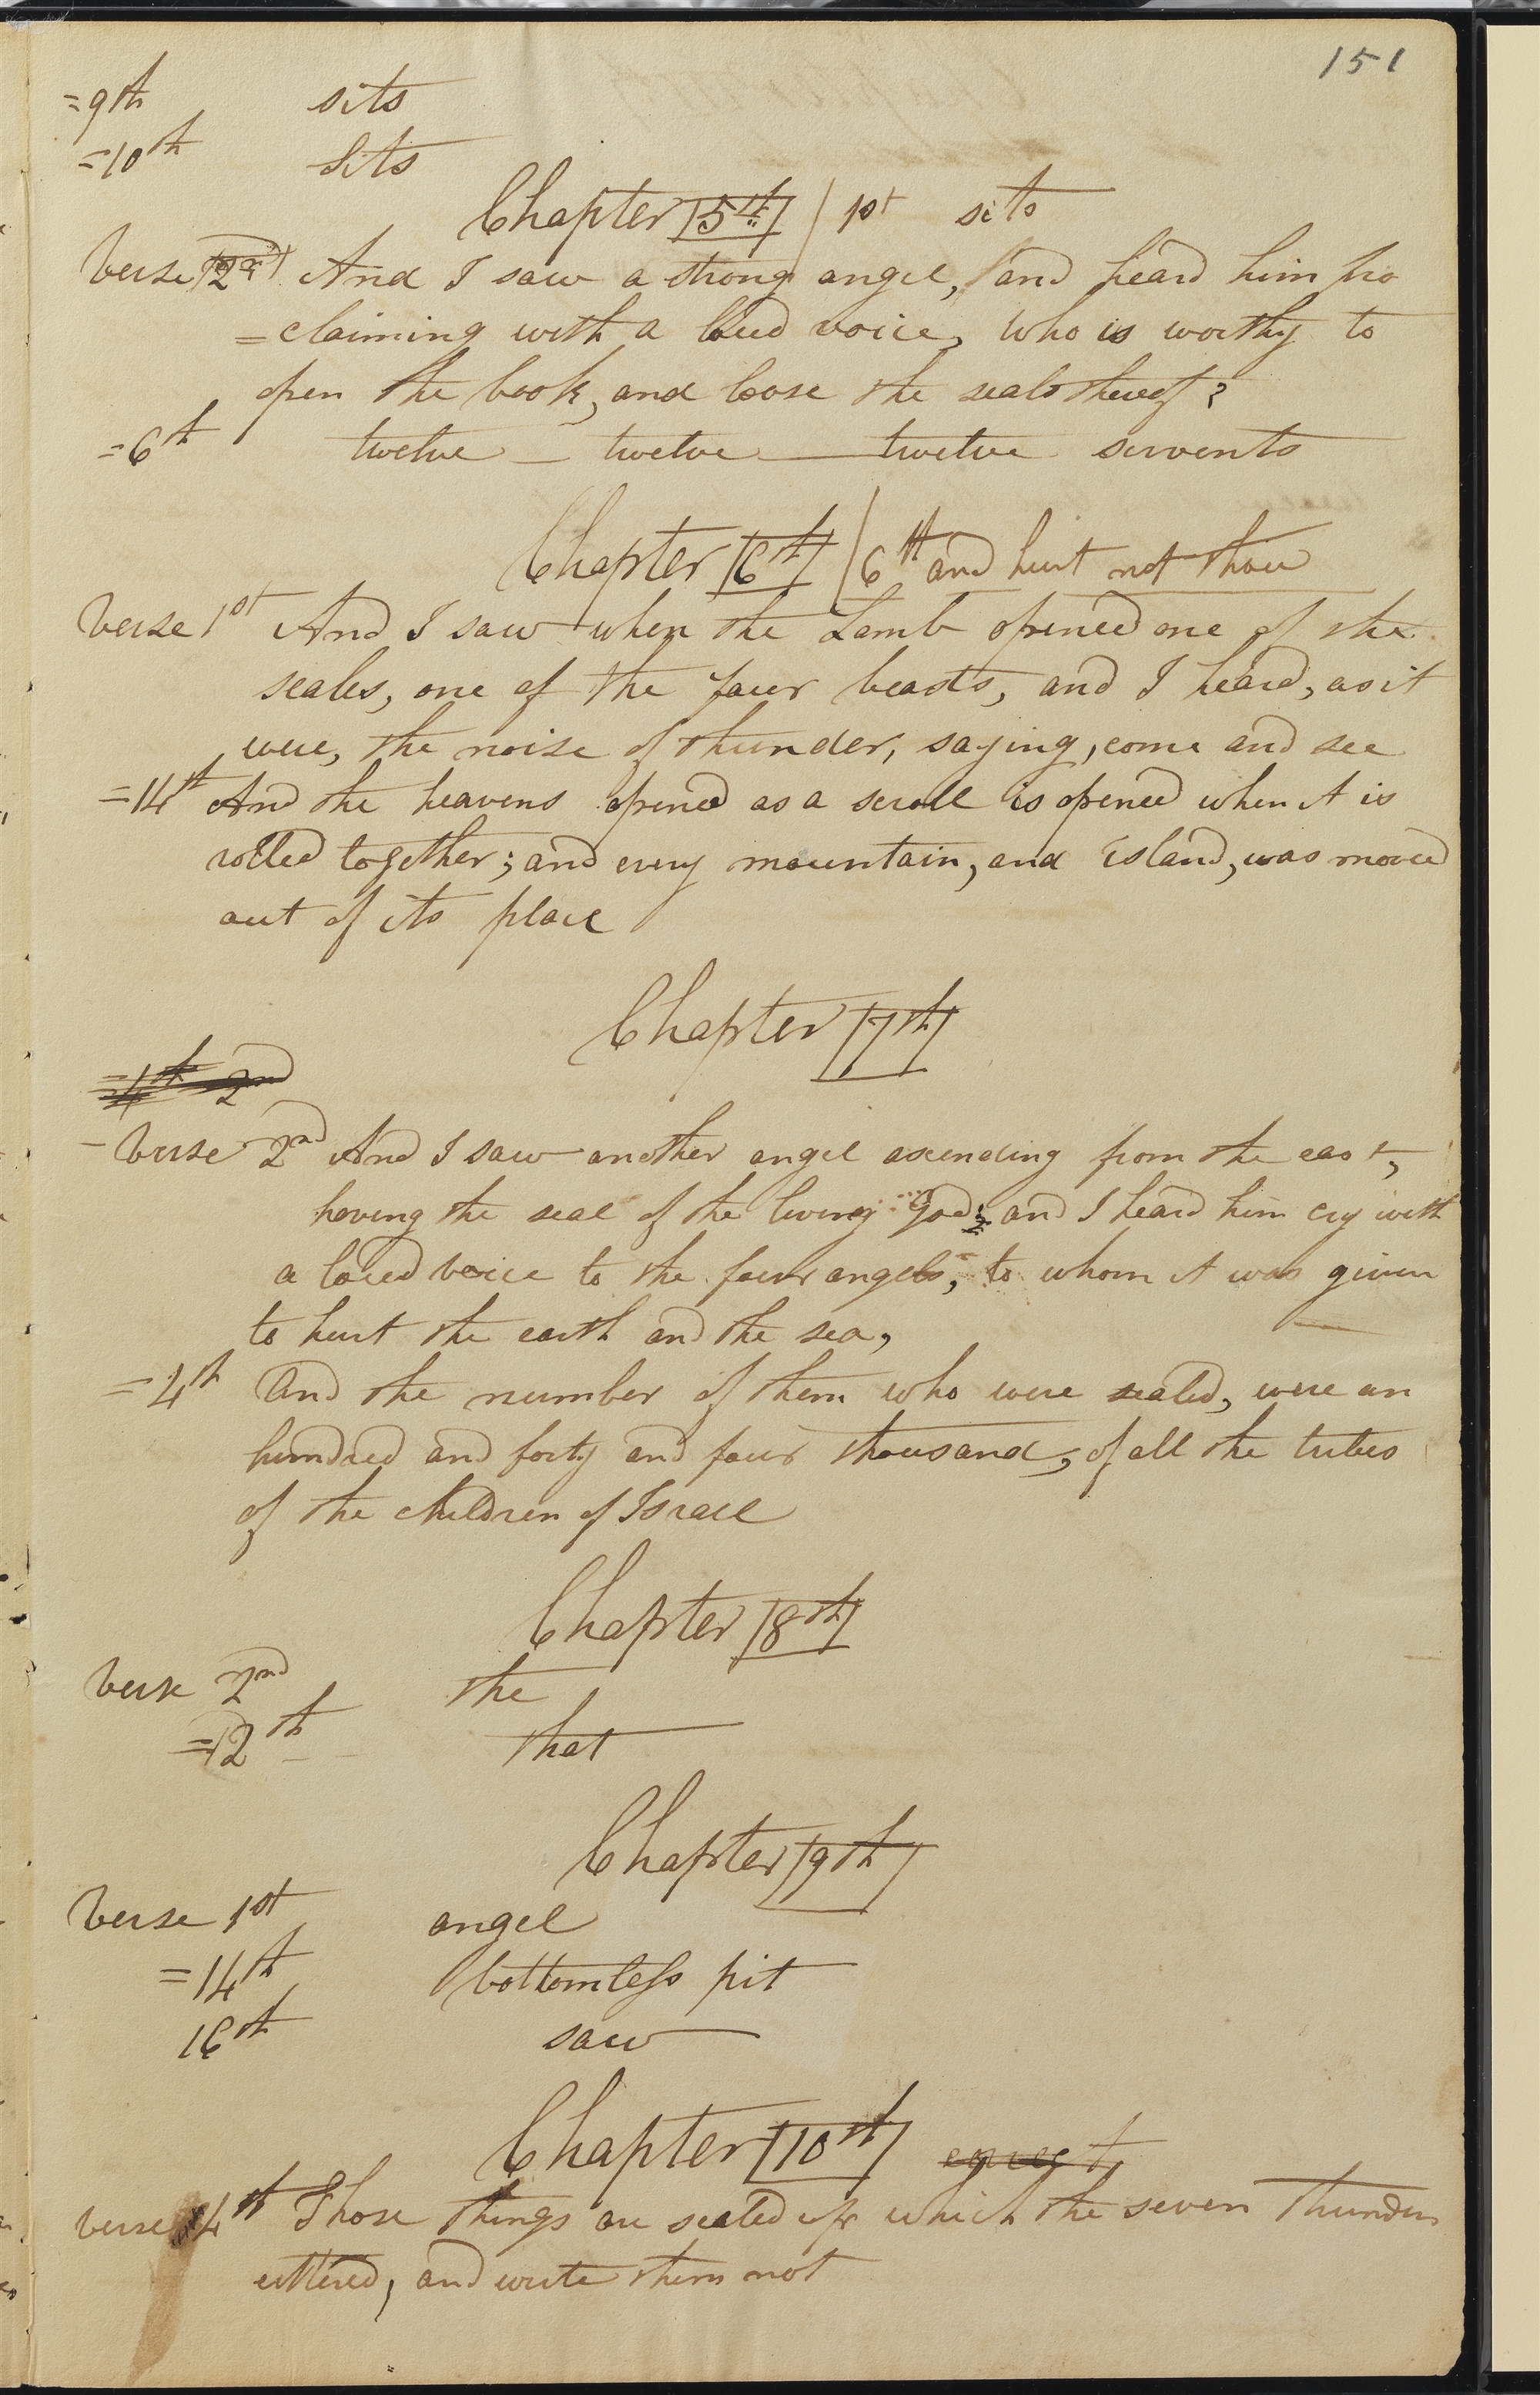 151
=9th sits
=10th sits
Chapter 5th / 1st sits
Verse 2d And I saw a strong angel, and heard him pro
=claiming with a loud voice, Who is worthy to
open the book, and loose the seals thereof?
=6th twelve — twelve — twelve servents
Chapter 6th / 6th and hurt not thou
Verse 1st And I saw when the Lamb opened one of the
seales, one of the four beasts, and I heard, as it
were, the noise of thunder, saying, come and see
=14th And the heavens opened as a scroll is opened when it is
rolled together; and every mountain, and island, was moved
out of its place
Chapter 7th
=4th 2nd
- Verse 2nd And I saw another angel ascending from the east,
having the seal of the living God; and I heard him cry with
a loud voice to the four angels, to whom it was given
to hurt the earth and the sea,
=4th And the number of them who were sealed, were an
hundred and forty and four thousand, of all the tribes
of the children of Israel
Chapter 8th
Verse 2nd the
=12th that
Chapter 9th
Verse 1st angel
=14th bottomless pit
16th saw
Chapter 10th
verse 4th Those things are sealed up which the seven thunders
uttered, and write them not